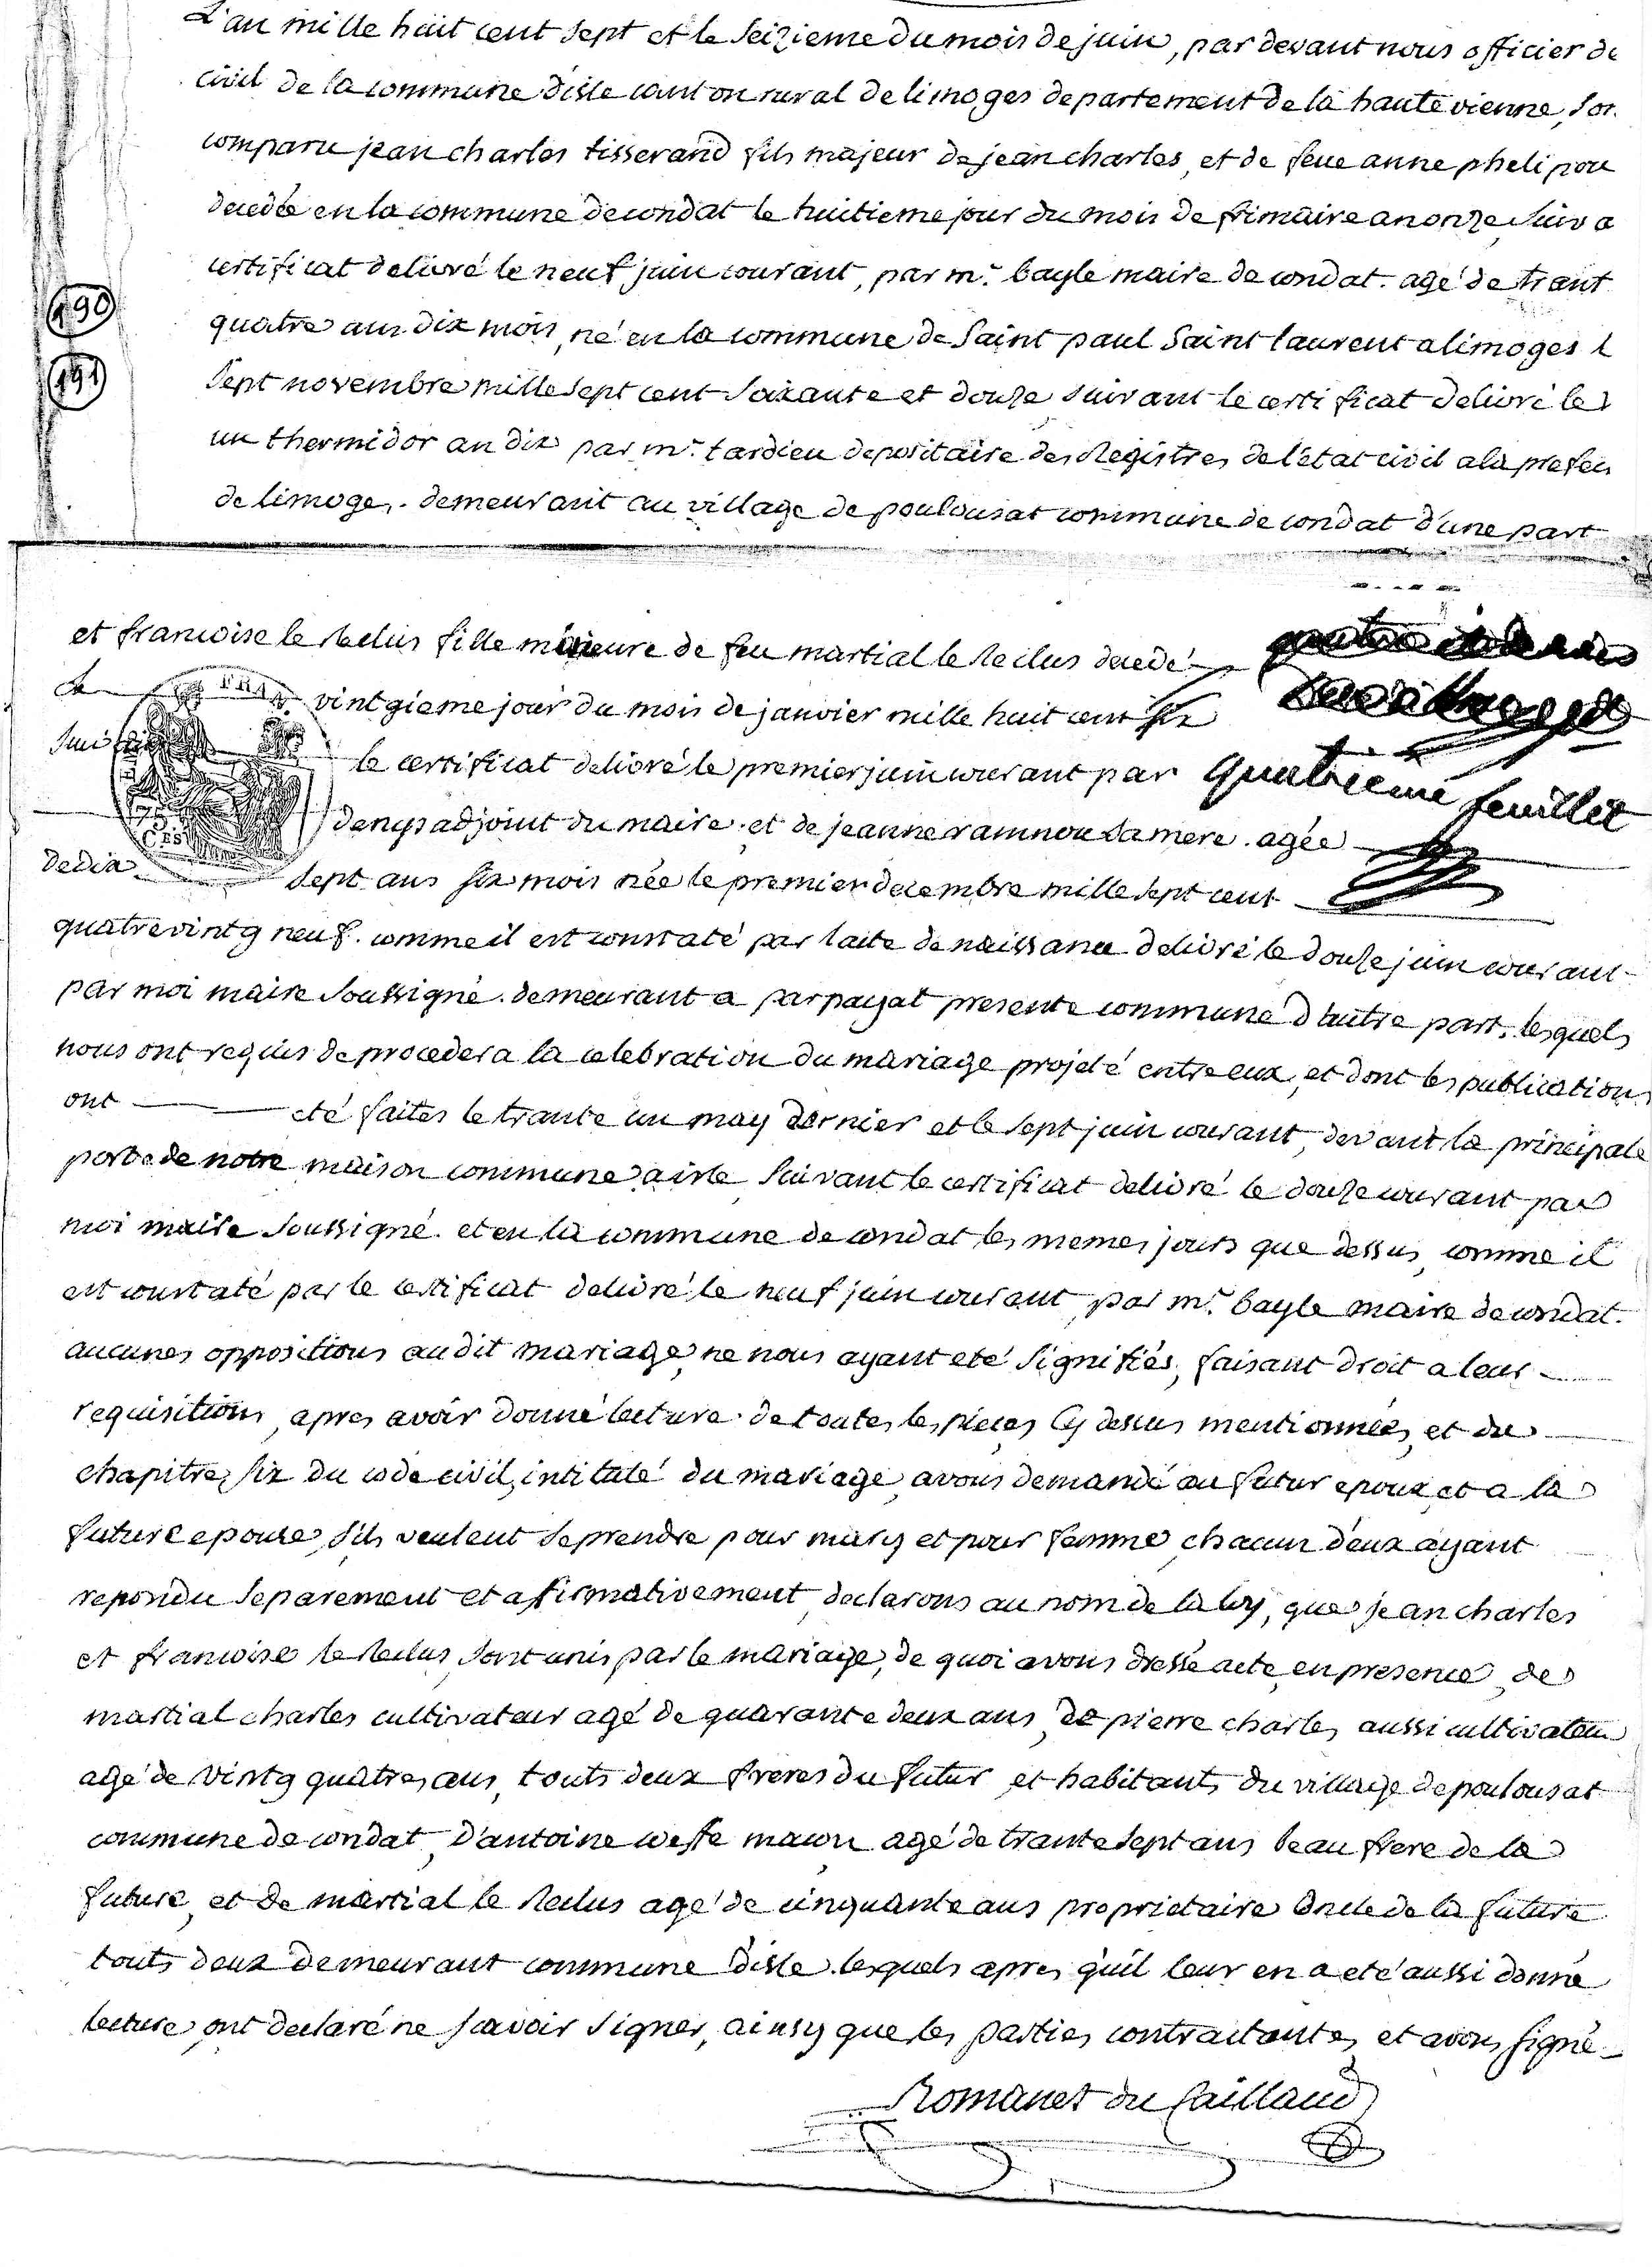 L'an mille huit cent sept et le seizieme du mois de juin, par devant nous officier de
civil de la commune d'isle canton rural de limoges departement de la haute vienne, son
comparu jean charles tisserand fils majeur de jean charles, et de feue anne phelipou
decedée en la commune de condat le huitieme jour du mois de frimaire an onze suiva
certificat delivré le neuf juin courant, par mr. bayle maire de condat. agé de trant
quatre ans dix mois, né en la commune de Saint paul Saint laurent a limoges l
sept novembre mille sept cent soixante et douze suivant le certificat delivré le
un thermidor an dix par mr. tardieu depositaire des Registres de l'état civil a la prefec
de limoges. demeurant au village de poulousat commune de condat d'une part
190
191
et francoise le Reclus fille mineure de feu martial le Reclus decedé
Le vintgieme jour du mois de janvier mille huit cent six
suivant le certificat delivré le premier juin courant par
quatrieme feuillet
denys adjoint du maire. et de jeanne ramnou sa mere. agée
de dix sept ans six mois née le premier decembre mille sept cent
quatre vintg neuf. comme il est constaté par l'acte de naissance delivré le douze juin courant
par moi maire soussigné. demeurant a parpayat presente commune d'autre part. lesquels
nous ont requis de proceder a la celebration du mariage projeté entre eux, et dont les publications
ont eté faites le trante un may dernier et le sept juin courant, devant la principale
porte de notre maison commune a isle, suivant le certificat delivré le douze courant par
moi maire soussigné. et en la commune de condat les memes jours que dessus, comme il
est constaté par le certificat delivré le neuf juin courant, par mr. bayle maire de condat.
aucunes oppositions au dit mariage, ne nous ayant eté signifiés, faisant droit a leur
requisitions, apres avoir donné lecture de toutes les pieces Cy dessus mentionnées, et du
chapitre six du code civil, intitulé du mariage, avons demandé au futur epoux et a la
future epouse, s'ils veulent se prendre pour mary et pour femme, chacun d'eux ayant
repondu separement et afirmativement, declarons au nom de la loy, que jean charles
et francoise le Reclus, sont unis par le mariage, de quoi avons dressé acte, en presence de
martial charles cultivateur agé de quarante deux ans, de pierre charles, aussi cultivateur
agé de vintg quatres ans, touts deux freres du futur et habitants du village de poulousat
commune de condat, d'antoine coste macon agé de trante sept ans beau frere de la
future, et de martial le Reclus agé de cinquante ans proprietaire oncle de la future
touts deux demeurant commune d'isle. lesquels apres qu'il leur en a eté aussi donné
lecture, ont declaré ne scavoir signer, ainsy que les parties contractantes, et avons signé
Romanet du Caillaud